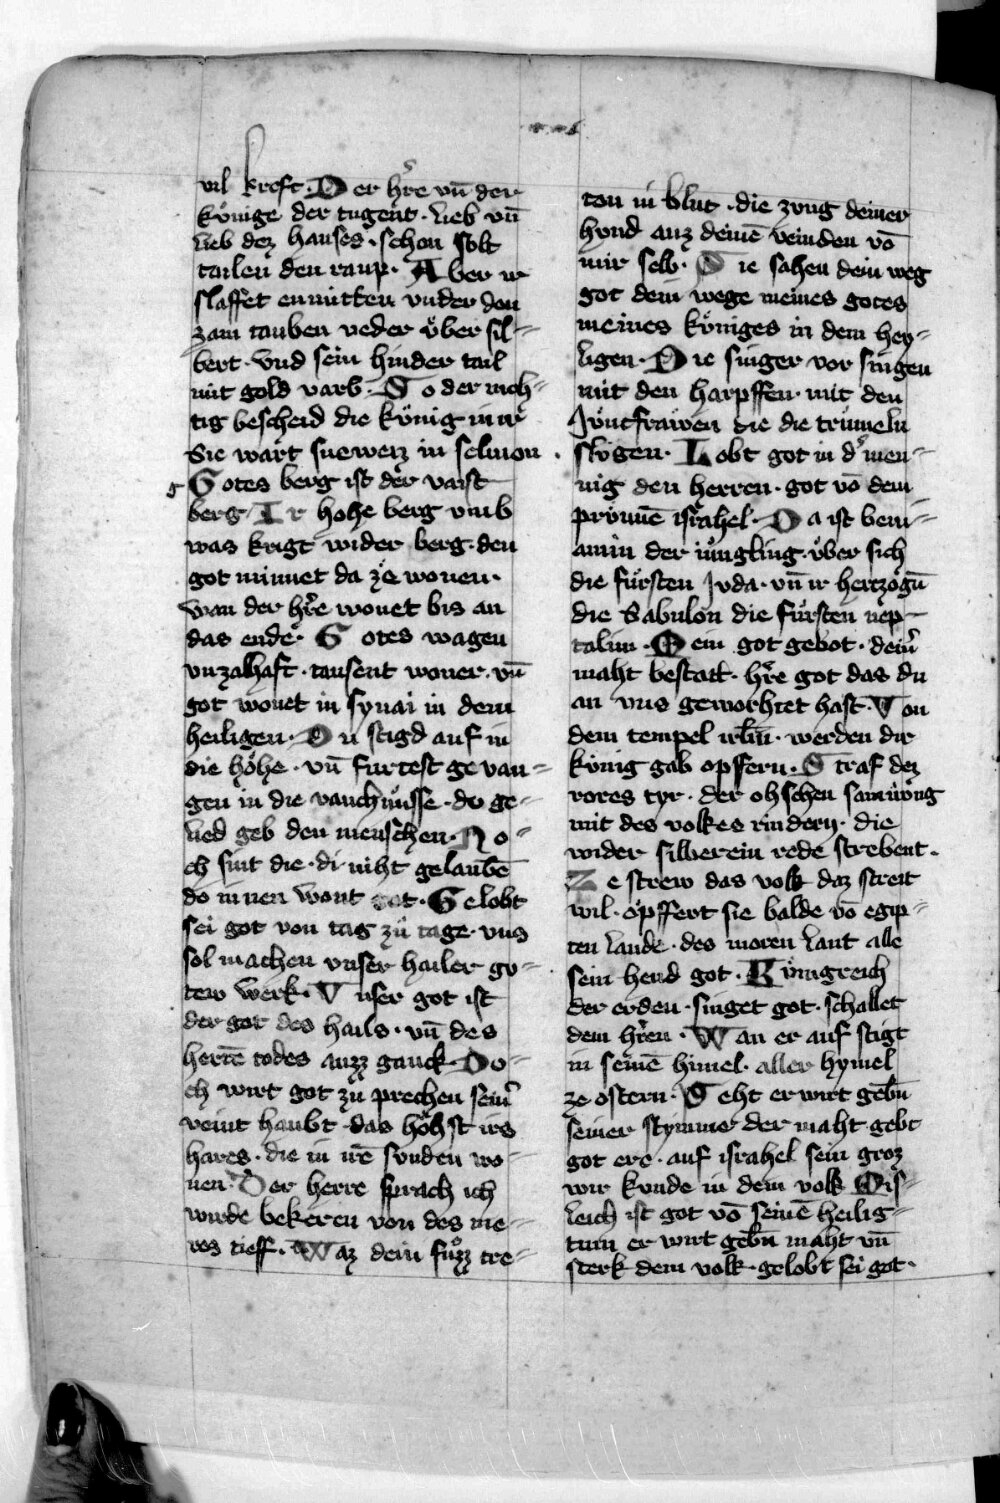 vil kreft · Der hr̄e vn̄ der
kuͤnige der tugent · lieb vn̄
lieb dez hauses · schon solt
tailen den raup · Aber ir
slaffet enmitten vnder den
zam tauben veder uͤber sil=
bert · vnd sein hinder tail
mit gold varb · So der mch=
tig bescheid die kuͤnig in ir
Sie wart sneweiz in selmon ·
Gotes berg ist der vaist
berg · Ir hohe berg vmb
was krigt wider berg · den
got minnet da ze wonen ·
wan der hr̄e wonet bis an
das ende · Gotes wagen
vnzalhaft · tausent woner · vn̄
got wonet in synai in dem
heiligen · Du stigd auf in
die hoͤhe · vn̄ furtest gevan=
gen in die vanchnuͤsse · do ge=
lied geb den menschen · No=
ch sint die · di niht gelaubē
do innen wont got · Gelobt
sei got von tag zu tage · vns
sol machen vnser hailer go=
tew werk · Vnser got ist
der got des hails · vn̄ des
herrē todes auzz ganck · Do=
ch wirt got zu prechen sein͛
veint haubt · das hoͤhst irs
hares · die in irē sunden wo=
nen · Der herre sprach ich
wirde bekeren von des me=
res tieff · Waz dein fuͤzz tre=
ton in blut · die zvng deiner
hvnd auz deinē veinden vō
mir selb · Sie sahen dein weg
got dein wege meines gotes
meines kuͤniges in dem hey=
ligen · Die singer vor singen
mit den harpffen · mit den
Juͤncfrawen die die trumeln
sluͤgen · Lobt got in d͛ men=
nig den herren · got vō dem
prunnē israhel · Da ist beni=
amin der iuͤngling · uͤber sich
die fuͤrsten Jvda · vn̄ ir hertzogn̄
die Sabulon die fuͤrsten nep=
talim · Dein got gebot · dein͛
maht bestatt · hr̄e got das du
an vns geworhtet hast · Von
dem tempel irl̄m̄ · werden dir
kuͤnig gab opffern · Straf dez
rores tyr · der ohschen samnung
mit des volkes rindern · die
wider silberein rede strebent ·
Zestrew das volk daz streit
wil · opffert sie balde vō egip=
ten lande · des moren lant alle
sein hend got · Kuͤnigreich
der erden · singet got · schallet
dem hr̄en · Wan er auf stigt
in seinē himel · aller hymel
ze ostern · Seht er wirt gebn̄
seiner stymme der maht · gebt
got ere · auf israhel sein groz
wir kvnde in dem volk Wis=
leich ist got vō seinē heilig=
tum er wirt gebn̄ maht vn̄
sterk dem volk · gelobt sei got ·